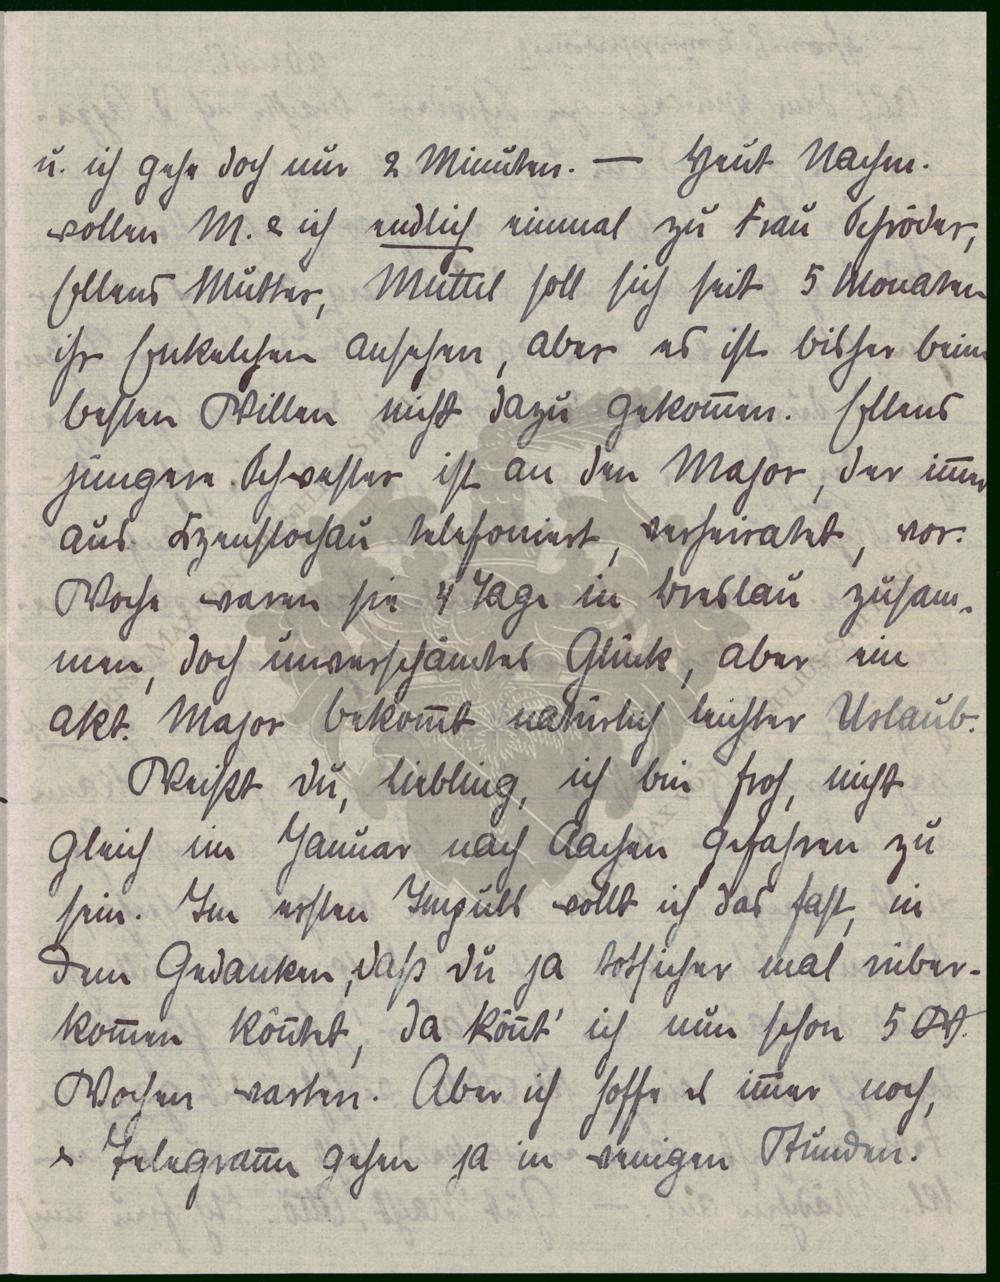 u. ich gehe doch nur 2 Minuten. — Heut Nachm.
wollen M. & ich endlich einmal zu Frau Schröder,
Ellens Mutter, Muttel soll sich seit 5 Monaten
ihr Enkelchen ansehen, aber es ist bisher beim
besten Willen nicht dazu gekom̅en. Ellens
jüngere Schwester ist an den Major, der im̅er
aus Czenstochau telefoniert, verheiratet, vor.
Woche waren sie 4 Tage in Breslau zusam-
men, doch unverschämtes Glück, aber ein
akt. Major bekom̅t natürlich leichter Urlaub.
Weißt du, Liebling, ich bin froh, nicht
gleich im Januar nach Aachen gefahren zu
sein. Im ersten Impuls wollt ich das fast, in
dem Gedanken, daß du ja totsicher mal rüber-
kom̅en kön̅test, da kön̅t' ich nun schon 5
Wochen warten. Aber ich hoffe es im̅er noch,
& Telegram̅e gehen ja in wenigen Stunden.